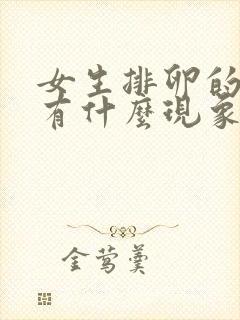 女生排卵的
有什麼現象
金莺羹